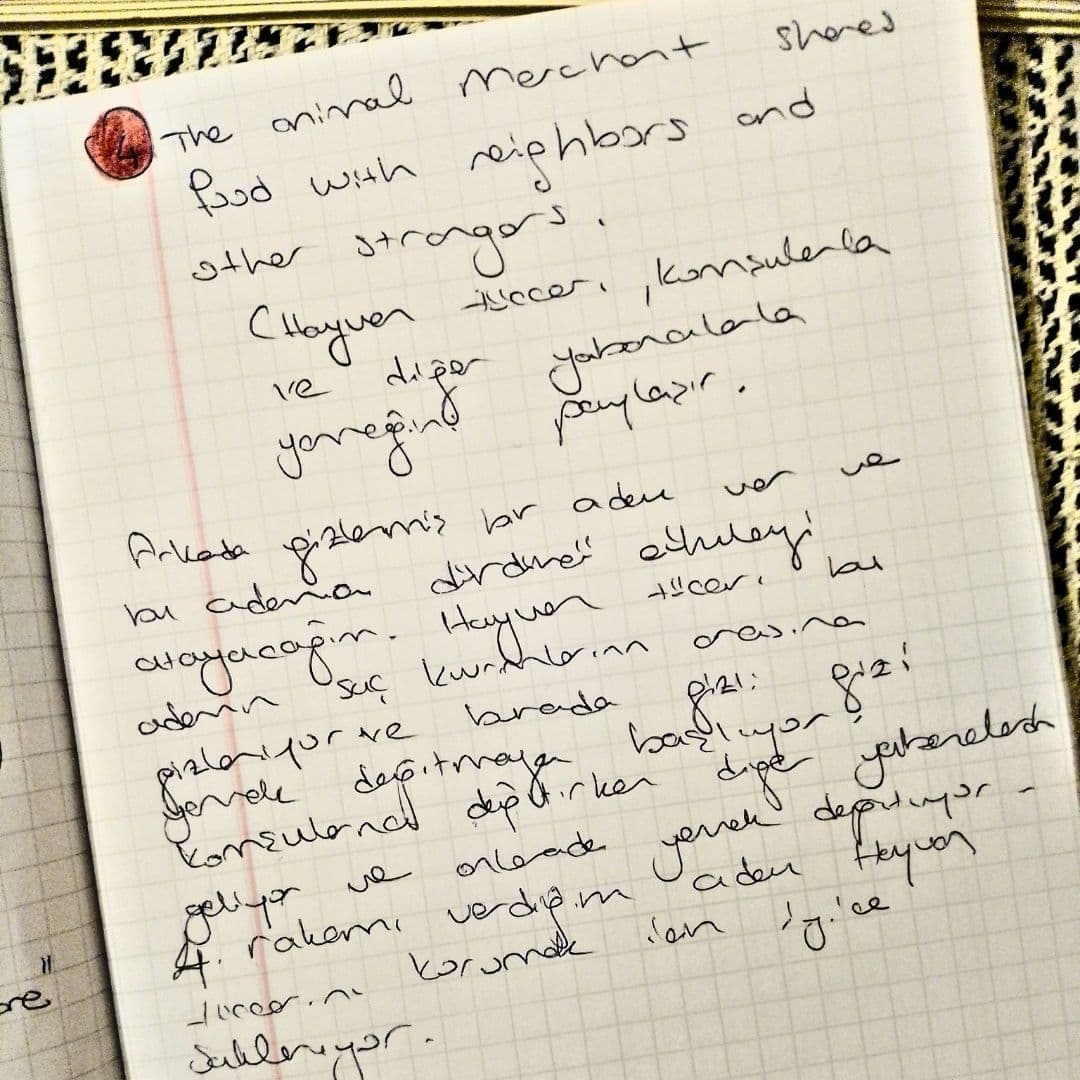 4 The animal Merchant shares
food with neighbors and
other strangers.
(Hayvan tüccarı, komşularla
ve diğer yabancılarla
yemeğini paylaşır.
Arkada gizlenmiş bir adam var ve
bu adama dördüncü etkileyi
atayacağım. Hayvan tüccarı bu
adamın suç kurbanlarının arasına
gizleniyor ve burada gizli gizli
yemek dağıtmaya başlıyor
Komşularına dağıtırken diğer yabancılarda
geliyor ve onlarada yemek dağıtıyor -
4. rakamı verdiğim adam Hayvan
tüccarını korumak için iyice
Saklanıyor.
"
ore